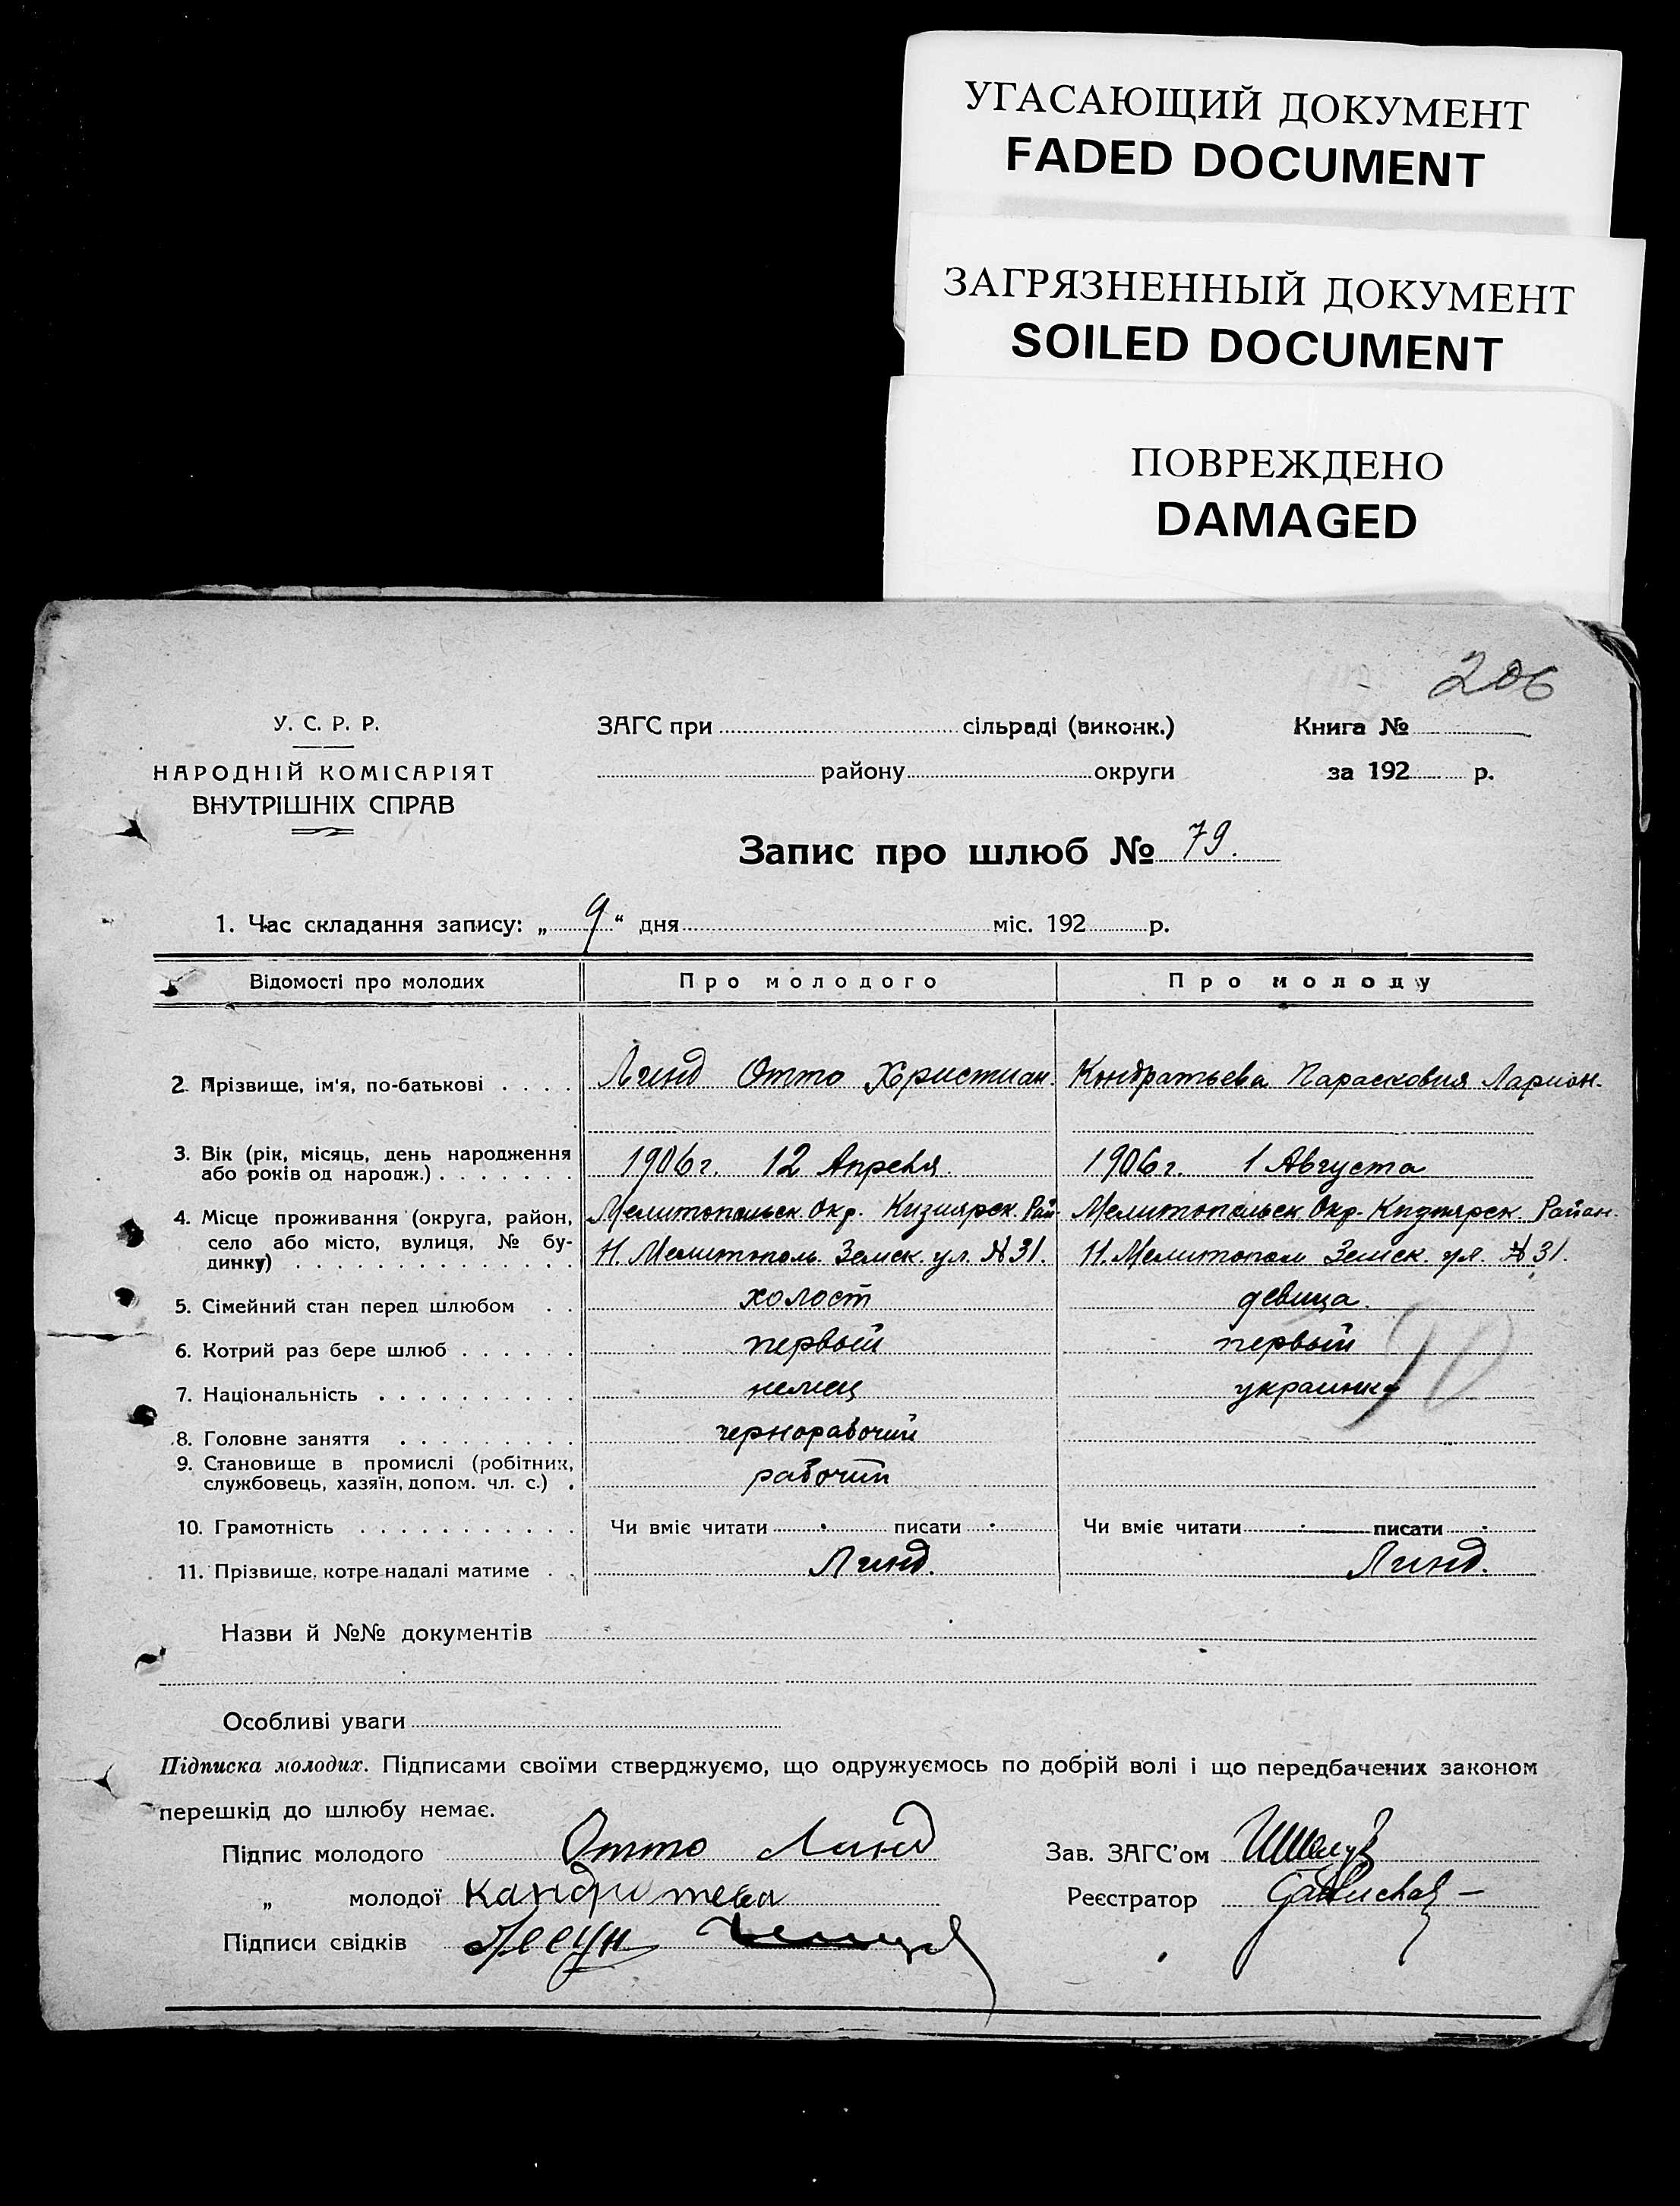 УГАСАЮЩИЙ ДОКУМЕНТ
FADED DOCUMENT
ЗАГРЯЗНЕННЫЙ ДОКУМЕНТ
SOILED DOCUMENT
ПОВРЕЖДЕНО
DAMAGED
206
У. С. Р. Р.
НАРОДНІЙ КОМІСАРІЯТ
ВНУТРІШНІХ СПРАВ
ЗАГС при сільраді (виконк.)
району округи
Книга №
за 192 р.
Запис про шлюб № 79.
1. Час складання запису: „ 9 “ дня міс. 192 р.
Відомості про молодих Про молодого Про молоду
2. Прізвище, ім'я, по-батькові . . . . Линд Отто Христиан. Кондратьева Парасковия Ларион.
3. Вік (рік, місяць, день народження
або років од народж.) . . . . . . . 1906 г. 12 Апреля 1906 г. 1 Августа
4. Місце проживання (округа, район, Мелитопольск. Окр. Кизиярск. Рай- Мелитопольск. Окр. Кизиярск. Район.
село або місто, вулиця, № бу- Н. Мелитополь Земск. ул. № 31. Н. Мелитополь Земск. ул. № 31.
динку) . . . . . . . . . . . . . .
5. Сімейний стан перед шлюбом . . холост девица.
6. Котрий раз бере шлюб . . . . . . первый первый
7. Національність . . . . . . . . . . немец украинка
8. Головне заняття . . . . . . . . . чернорабочий
9. Становище в промислі (робітник,
службовець, хазяїн, допом. чл. с.) . рабочий
10. Грамотність . . . . . . . . . . . Чи вміє читати писати Чи вміє читати писати
11. Прізвище, котре надалі матиме . . Линд. Линд.
Назви й №№ документів
Особливі уваги
Підписка молодих. Підписами своїми стверджуємо, що одружуємось по добрій волі і що передбачених законом
перешкід до шлюбу немає.
Підпис молодого Отто Линд Зав. ЗАГС'ом
„ молодої Реєстратор
Підписи свідків